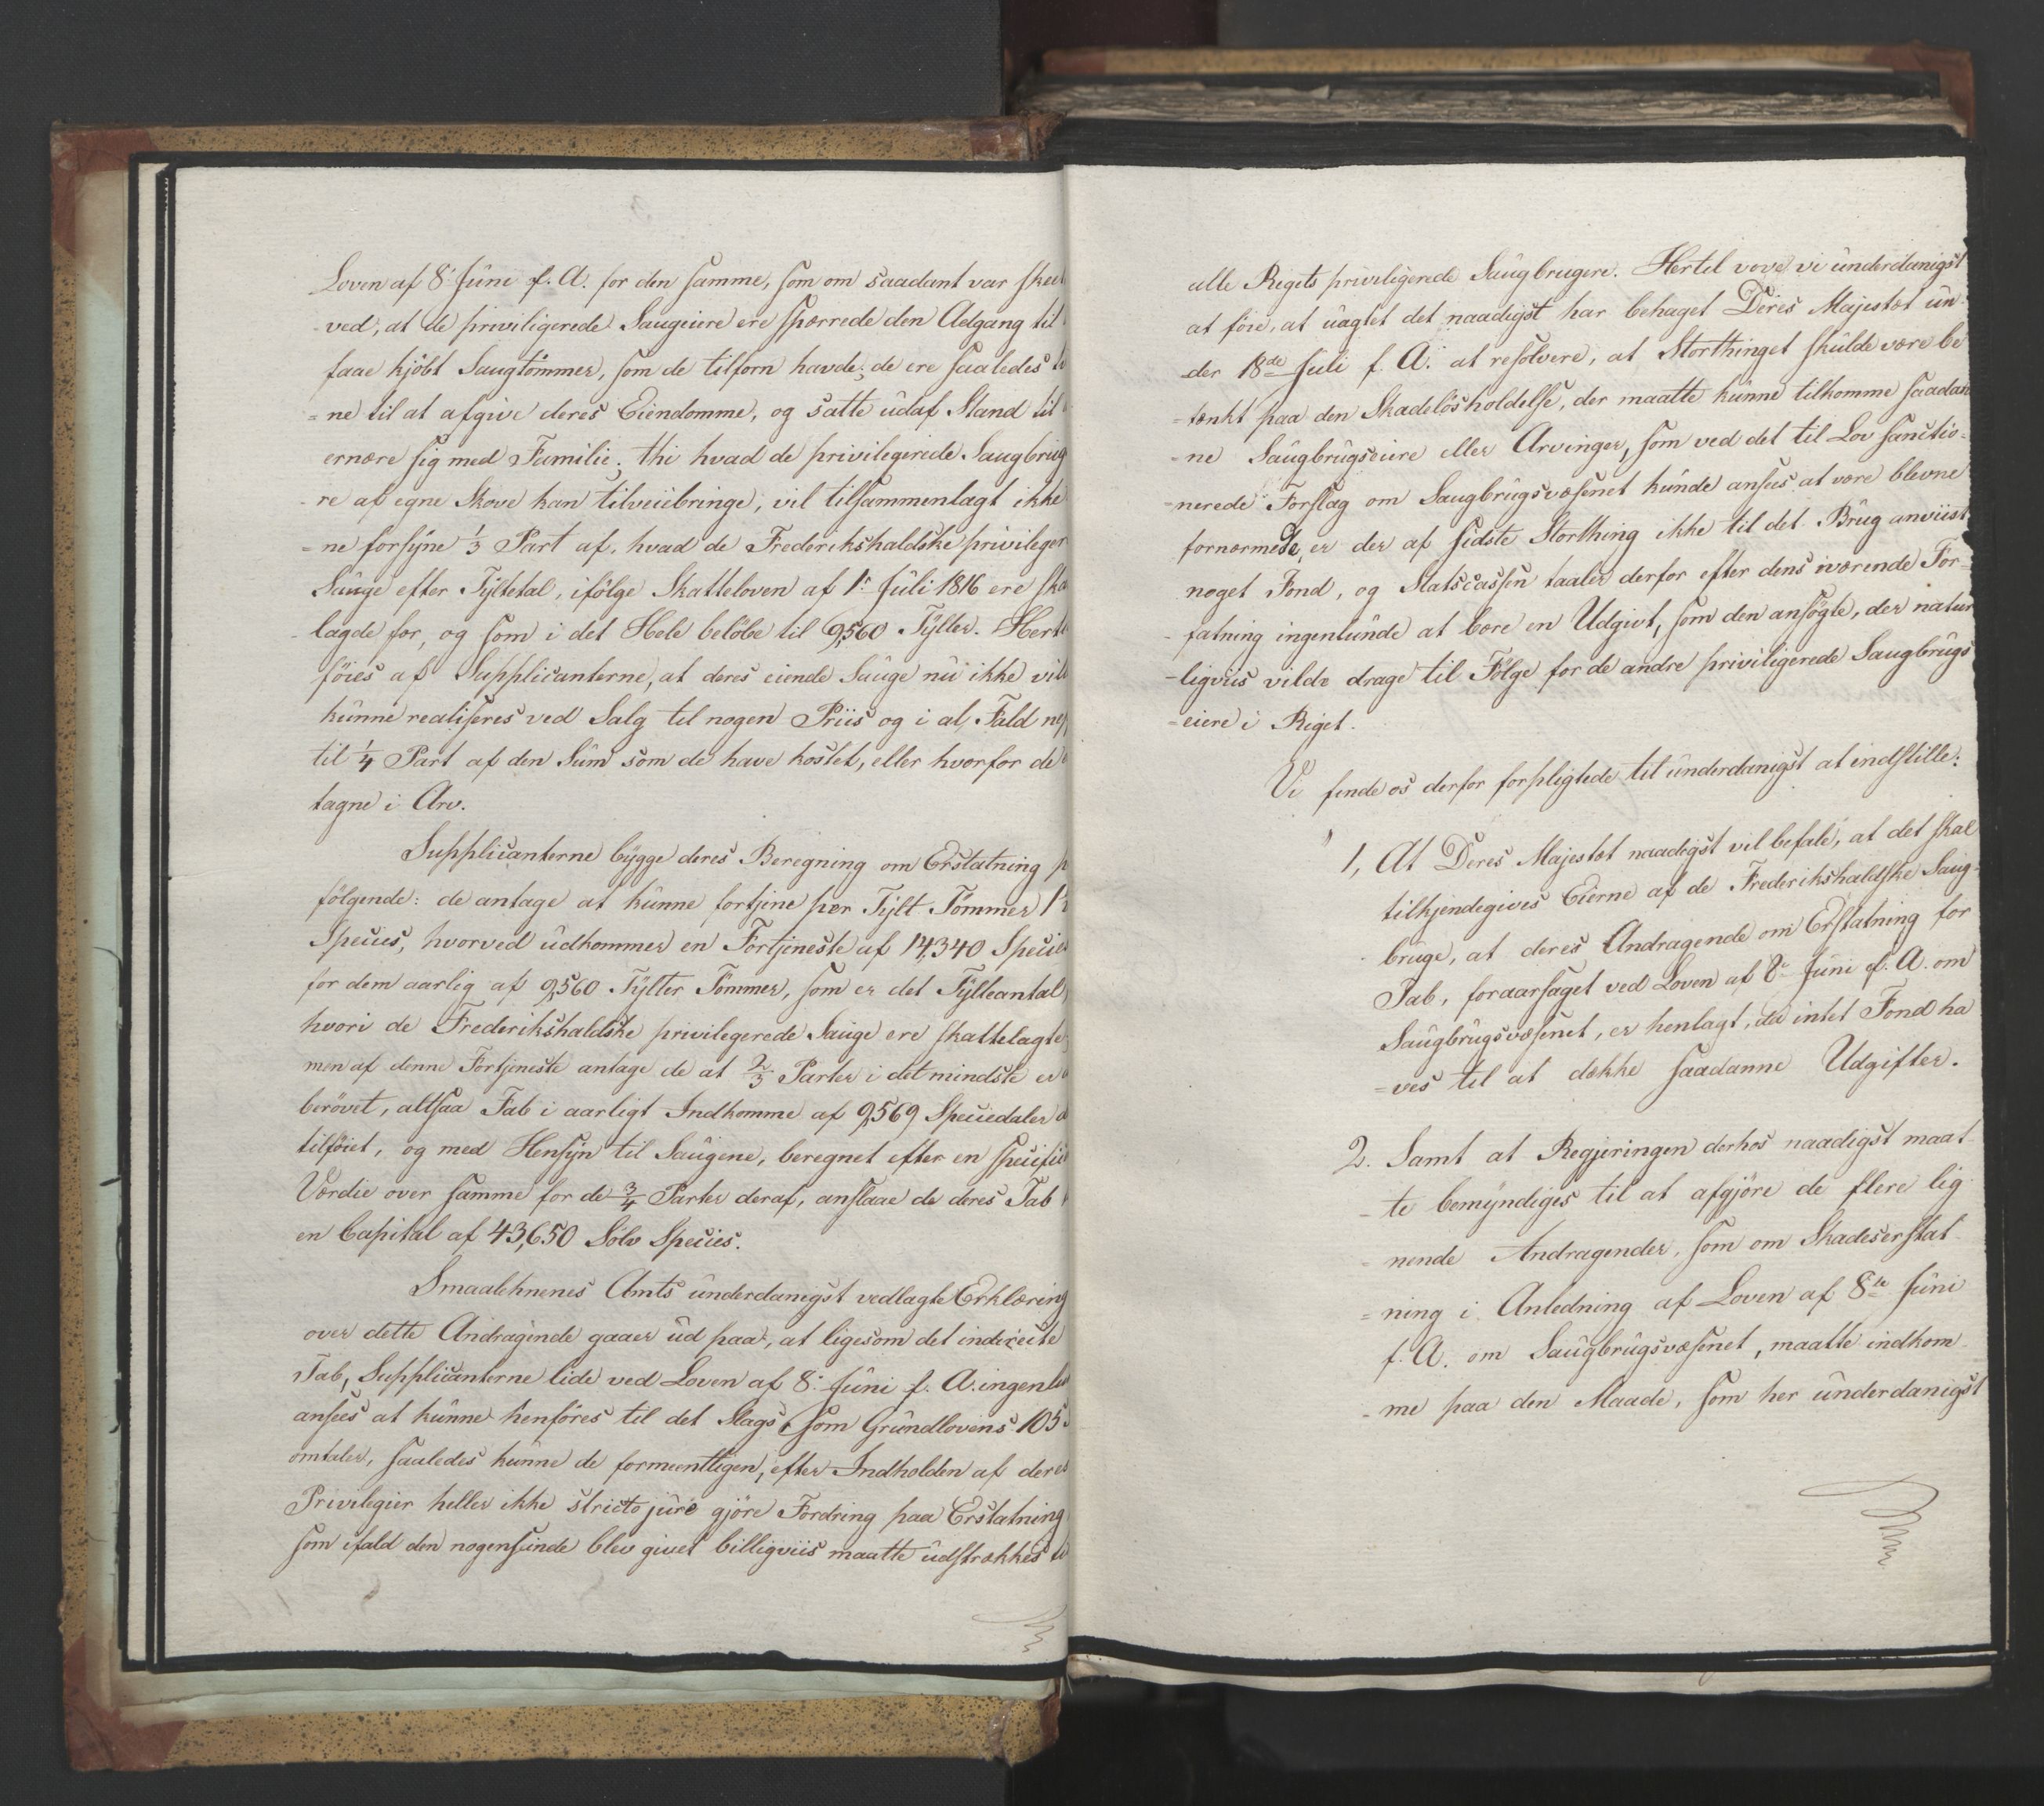 Loven af 8. Juni f. A. for den samme, som om saadant var skeet
ved, at de priviligerede Saugeiere ere spærrede den Adgang til
faae kjöbt Saugtömmer, som de tilforn havde; de ere saaledes
=ne til at afgive deres Eiendomme, og satte udaf Stand til
ernære sig med Familie; thi hvad de privilegerede Saugbrug
re af egne Skove kan tilveiebringe, vil tilsammenlagt ikke
=ne forsyne 1/3 Part af, hvad de Frederikshaldske privileger
Sauge efter Tyltetal, ifölge Skatteloven af 1. Juli 1816 ere ska
lagde for, og som i det Hele belöbe til 9,560 Tylter. Hert
föies af Supplicanterne, at deres eiende Sauge nu ikke vil
kunne realiseres ved Salg til nogen Priis og i al Fald nep
til 1/4 Part af den Sum som de have kostet, eller hvorfor de
tagne i Arv.
Supplicanterne bygge deres Beregning om Erstatning p
fölgende: de antage at kunne fortjene per Tylt Tömmer 1 1/2
Species, hvorved udkommer en Fortjeneste af 14,340 Specie
for dem aarlig af 9,560 Tylter Tömmer, som er det Tylteantal
hvori de Frederikshaldske privilegerede Sauge ere skattelagte
men af denne Fortjeneste antage de at 2/3 Parter i det mindste er
berövet, altsaa Tab i aarligt Indkomme af 9,569 Speciedaler
tilföiet, og med Hensyn til Saugene, beregnet efter en specific
Værdie over samme for de 3/4 Parter deraf, anslaae de deres Tab
en Capital af 43,650 Sölv Species.
Smaalehnenes Amts underdanigst vedlagte Erklæring
over dette Andragende gaaer ud paa, at ligesom det indirecte
Tab, Supplicanterne lide ved Loven af 8. Juni f. A. ingenlu
ansees at kunne henföres til det Slags som Grundlovens 105
omtaler, saaledes kunne de formeentligen, efter Indholden af deres
Privilegier heller ikke stricto jure gjöre Fordring paa Erstatning
som ifald den nogensinde blev givet billigviis maatte udstrækkes ti
alle Rigets priviligerede Saugbrugere. Hertil vove vi underdanigst
at föie, at uagtet det naadigst har behaget Deres Majestæt un
der 18de Juli f. A. at resolvere, at Storthinget skulde være be
=tænkt paa den Skadeslösholdelse, der maatte kunne tilkomme saadan
=ne Saugbrugseiere eller Arvinger, som ved det til Lov sanctio=
=nerede Forslag om Saugbrugsvæsenet kunde ansees at være blevne
fornærmede, er der af sidste Storthing ikke til det Brug anviist
noget Fond, og Statscassen taaler derfor efter dens nærende For=
=fatning ingenlunde at bære en Udgivt, som den ansögte, der natur
=ligviis vilde drage til Fölge for de andre priviligerede Saugbrugs
=eiere i Riget.
Vi finde os derfor forpligtede til underdanigst at indstille:
1, At Deres Majestæt naadigst vil befale, at det skal
tilkjendegives Eierne af de Frederikshaldske Saug=
bruge, at deres Andragende om Erstatning for
Tab, foraarsaget ved Loven af 8de Juni f. A. om
Saugbrugsvæsenet, er henlagt, da intet Fond ha
=ves til at dække saadanne Udgifter.
2. Samt at Regjeringen derhos naadigst maat
=te bemyndiges til at afgjöre de flere lig
nende Andragender, som om Skadeserstat
=ning i Anledning af Loven af 8de Juni
f. A. om Saugbrugsvæsenet, maatte indkom
=me paa den Maade, som her underdanigst